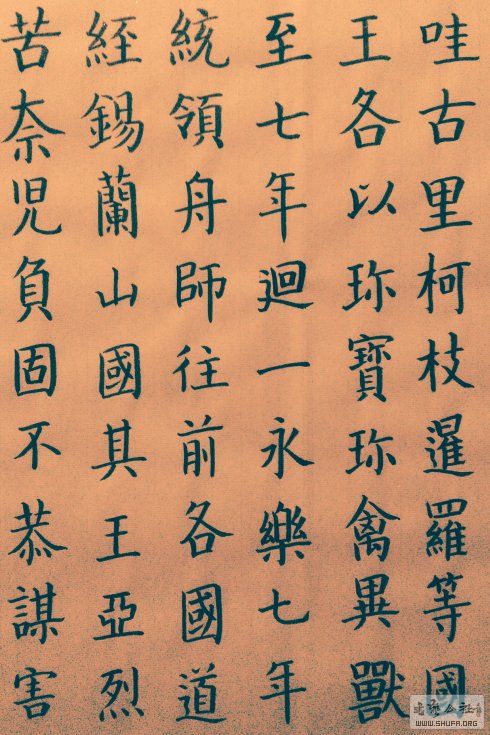 哇古里柯枝暹羅等國
王各以珎寶珎禽異獸
至七年迴一永樂七年
統領舟師往前各國道
經錫蘭山國其王亞烈
苦奈児負固不恭謀害
書法公社
WWW.SHUFA.ORG